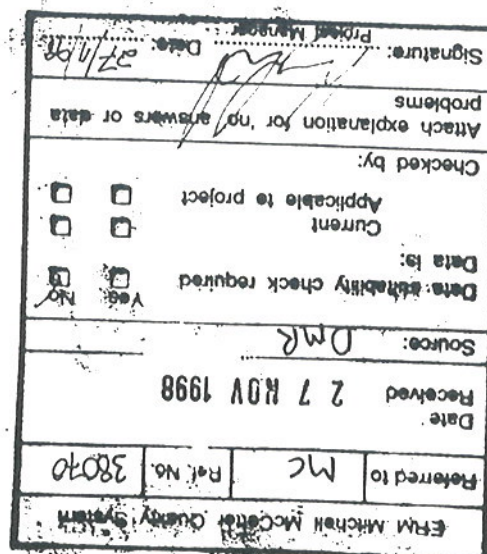 ERM Mitchell McCotter Quality System
Referred to MC Ref. No. 38070
Date
Received 27 NOV 1998
Source: DMR
Yes No
Data suitability check required
Data is:
Current
Applicable to project
Checked by:
Attach explanation for 'no' answers or data
problems
Signature: Date: 27/11/98
Project Manager